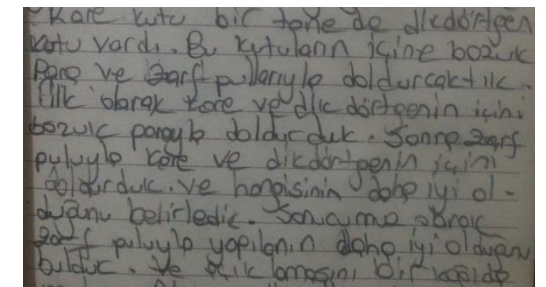 Kare kutu bir tane de dikdörtgen
kutu vardı. Bu kutuların içine bozuk
Para ve zarf pullarıyla doldurcaktık.
İlk olarak kare ve dik dörtgenin içini
bozuk parayla doldurduk. Sonra zarf
puluyla kare ve dikdörtgenin içini
doldurduk. ve hangisinin daha iyi ol-
duğunu belirledik. Sonucumuz olarak
zarf puluyla yapılanın daha iyi olduğunu
bulduk. Ve açıklamasını bir